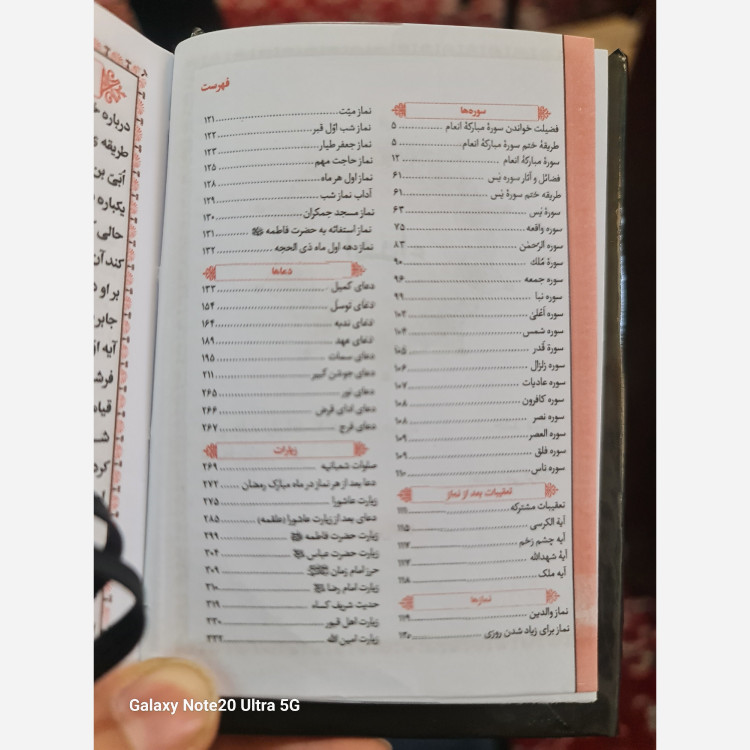 فهرست
سوره‌ها
فضیلت خواندن سورهٔ مبارکهٔ انعام ۵
طریقهٔ ختم سورهٔ مبارکهٔ انعام ۵
سورهٔ مبارکهٔ انعام ۱۲
فضائل و آثار سوره یٰس ۶۱
طریقه ختم سورهٔ یٰس ۶۱
سورهٔ یٰس ۶۳
سوره واقعه ۷۵
سوره الرّحمٰن ۸۳
سورهٔ مُلك ۹۰
سوره جمعه ۹۶
سوره نبا ۹۹
سوره اَعْلیٰ ۱۰۳
سوره شمس ۱۰۴
سورهٔ قَدر ۱۰۵
سوره زلزال ۱۰۶
سوره عادیات ۱۰۷
سوره کافرون ۱۰۸
سوره نصر ۱۰۸
سوره العصر ۱۰۹
سوره فلق ۱۰۹
سوره ناس ۱۱۰
تعقیبات بعد از نماز
تعقیبات مشترکه ۱۱۱
آیة الکرسی ۱۱۵
آیه چشم زخم ۱۱۷
آیهٔ شهدالله ۱۱۷
آیه ملک ۱۱۸
نمازها
نماز والدین ۱۱۹
نماز برای زیاد شدن روزی ۱۲۰
نماز میّت ۱۲۱
نماز شب اوّل قبر ۱۲۲
نماز جعفر طیار ۱۲۳
نماز حاجت مهم ۱۲۵
نماز اول هر ماه ۱۲۸
آداب نماز شب ۱۲۹
نماز مسجد جمکران ۱۳۰
نماز استغاثه به حضرت فاطمه ۱۳۱
نماز دهه اول ماه ذی الحجه ۱۳۲
دعاها
دعای کمیل ۱۳۳
دعای توسل ۱۵۴
دعای ندبه ۱۶۴
دعای عهد ۱۸۹
دعای سمات ۱۹۵
دعای جوشن کبیر ۲۱۱
دعای نور ۲۶۵
دعای ادای قرض ۲۶۶
دعای فرج ۲۶۷
زیارات
صلوات شعبانیه ۲۶۹
دعا بعد از هر نماز در ماه مبارک رمضان ۲۷۲
زیارت عاشورا ۲۷۵
دعای بعد از زیارت عاشورا (علقمه) ۲۸۵
زیارت حضرت فاطمه ۲۹۹
زیارت حضرت عباس ۳۰۴
حرز امام زمان ۳۰۹
زیارت امام رضا ۳۱۰
حدیث شریف کساء ۳۱۹
زیارت اهل قبور ۳۳۰
زیارت امین الله
درباره
طریقه
یکباره
حالی
کند آن
بر او د
جابر
آیه از
فرش
قیام
کرد
Galaxy Note20 Ultra 5G